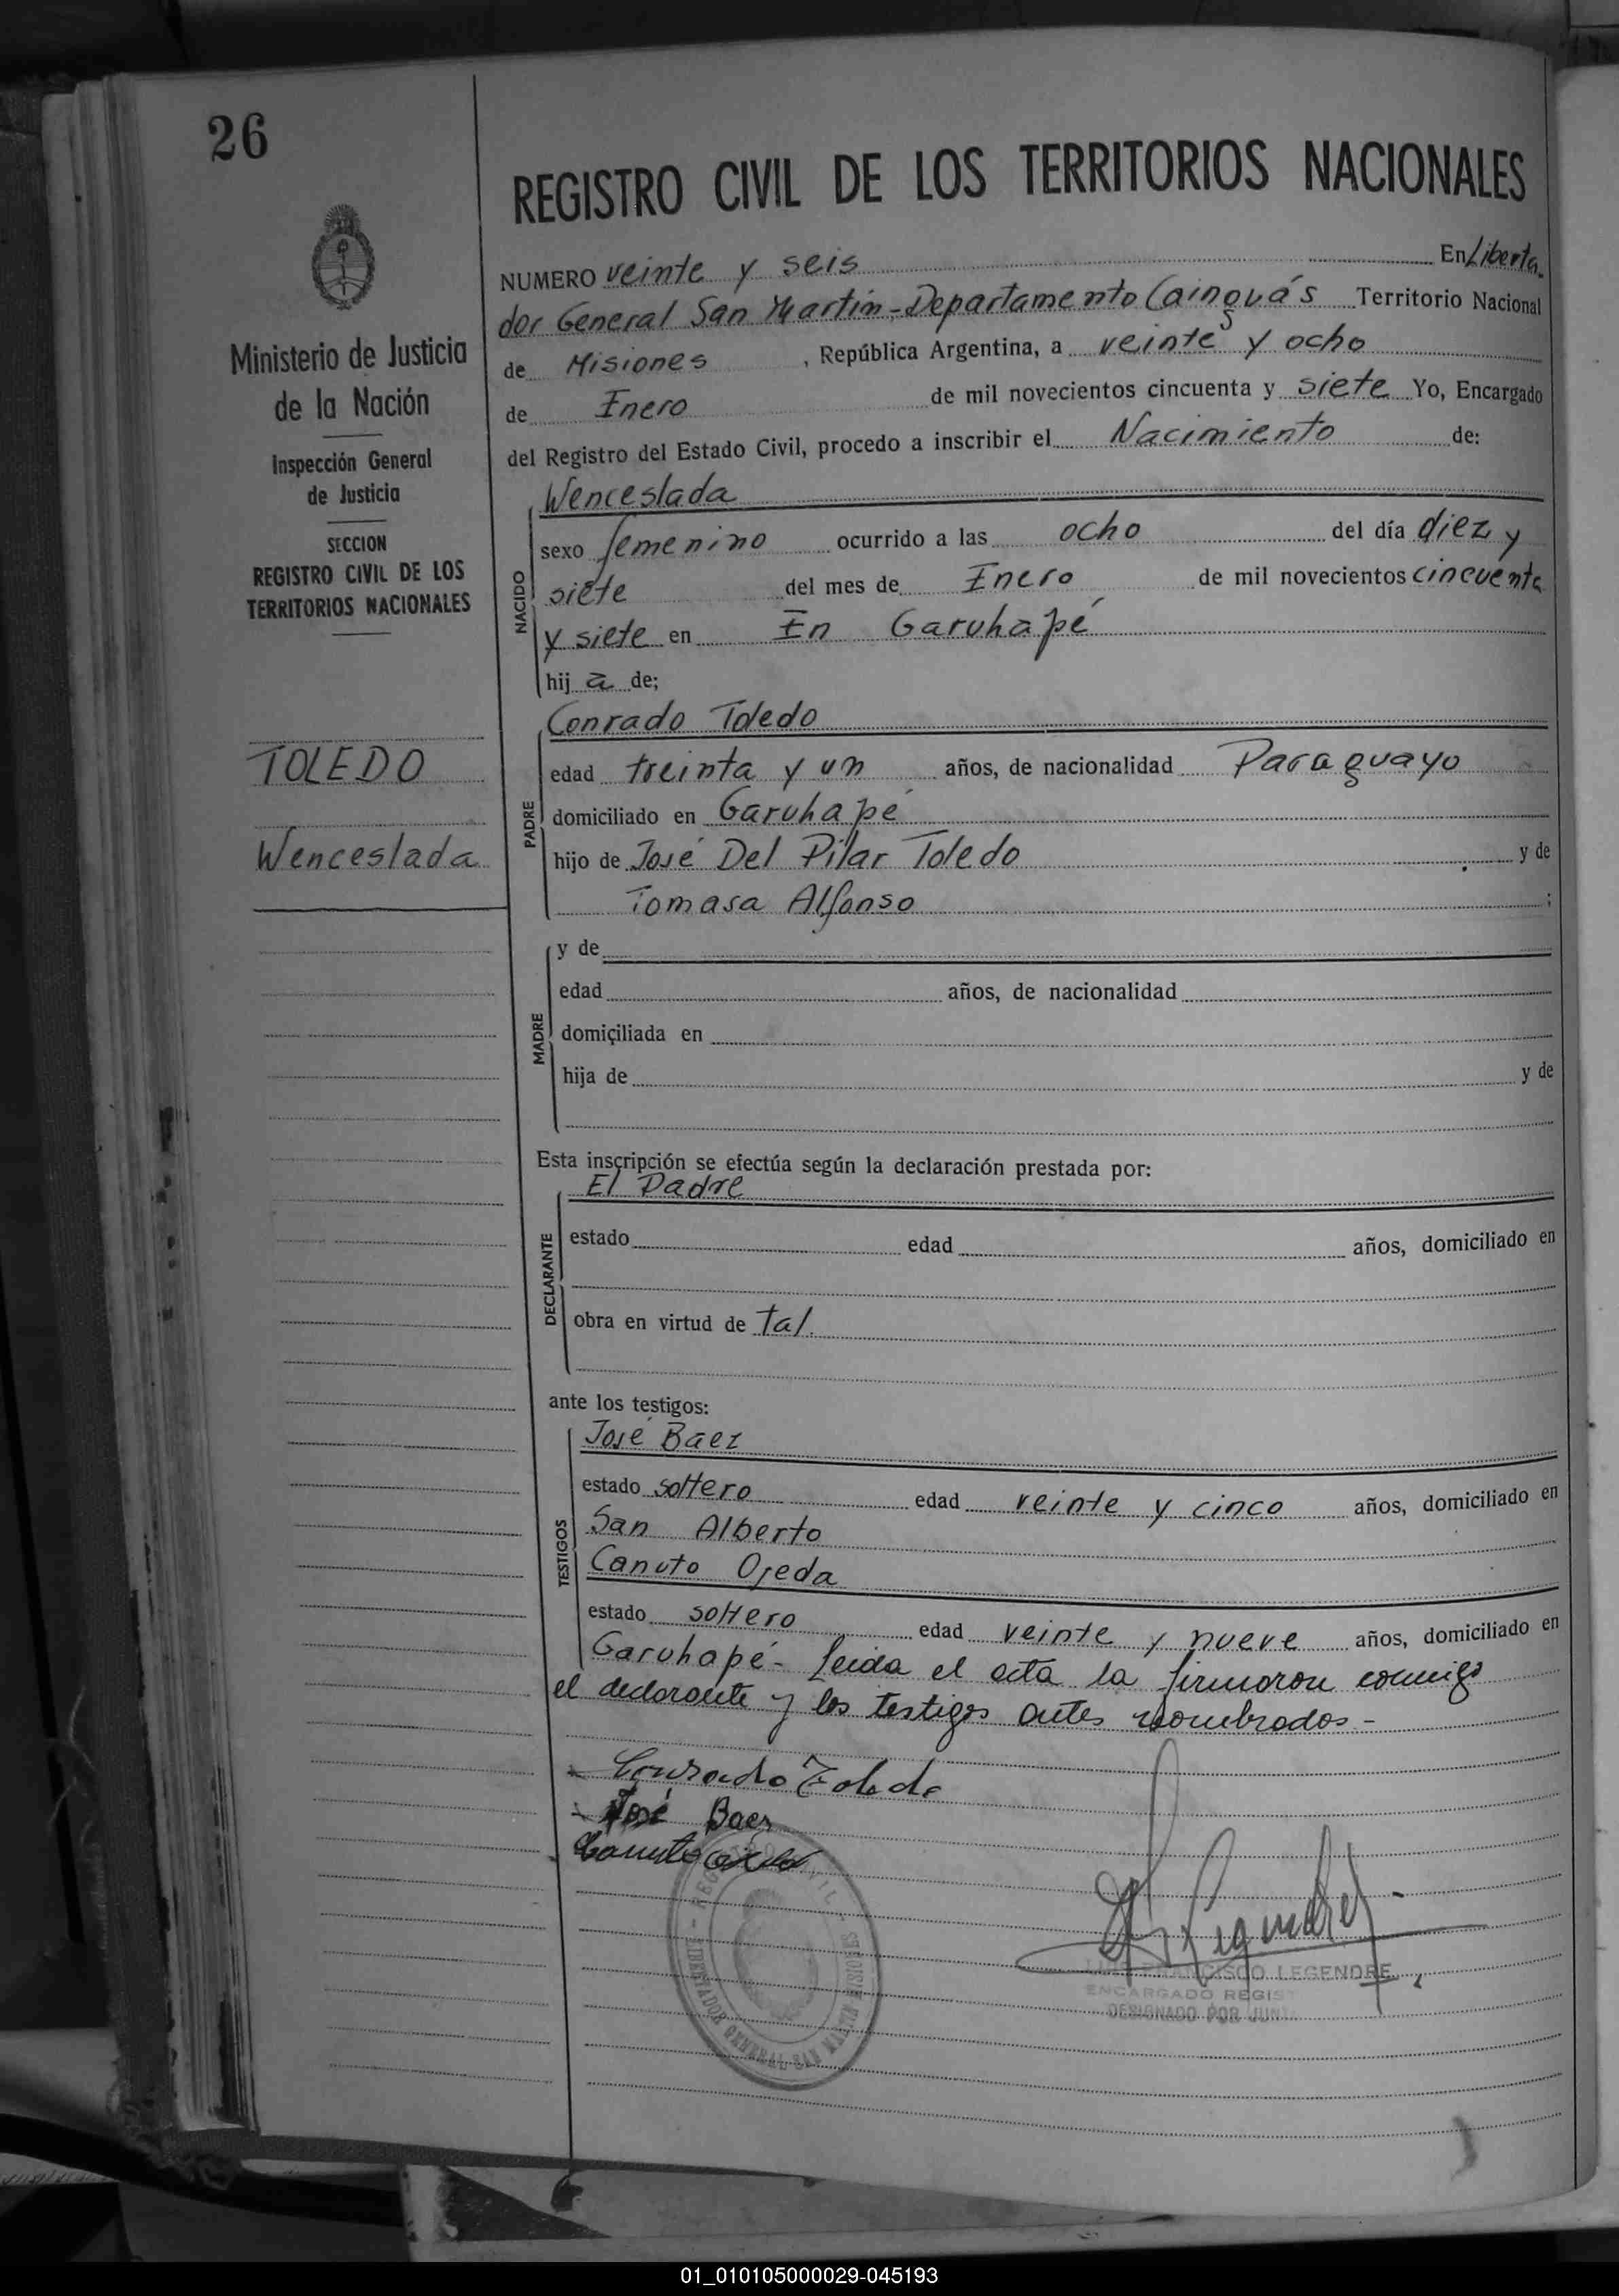 26
Ministerio de Justicia
de la Nación
Inspección General
de Justicia
SECCION
REGISTRO CIVIL DE LOS
TERRITORIOS NACIONALES
TOLEDO
Wenceslada
REGISTRO CIVIL DE LOS TERRITORIOS NACIONALES
NUMERO veinte y seis En Liberta
dor General San Martín-Departamento Cainguás Territorio Nacional
de Misiones , República Argentina, a veinte y ocho
de Enero de mil novecientos cincuenta y siete Yo, Encargado
del Registro del Estado Civil, procedo a inscribir el Nacimiento de:
NACIDO
Wenceslada
sexo femenino ocurrido a las ocho del día diez y
siete del mes de Enero de mil novecientos cincuenta
y siete en En Garuhapé
hij a de;
PADRE
Conrado Toledo
edad treinta y un años, de nacionalidad Paraguayo
domiciliado en Garuhapé
hijo de José Del Pilar Toledo y de
Tomasa Alfonso ;
MADRE
y de
edad años, de nacionalidad
domiciliada en
hija de y de
Esta inscripción se efectúa según la declaración prestada por:
DECLARANTE
El Padre
estado edad años, domiciliado en
obra en virtud de tal.
ante los testigos:
TESTIGOS
José Baez
estado soltero edad veinte y cinco años, domiciliado en
San Alberto
Canuto Ojeda
estado soltero edad veinte y nueve años, domiciliado en
Garuhapé- Leida el acta la firmaron conmigo
el declarante y los testigos antes nombrados-
Conrado Toledo
José Baez
Canuto
Legendre
FRANCISCO LEGENDRE
ENCARGADO REGIS
DESIGNADO POR JUNTA
01_010105000029-045193